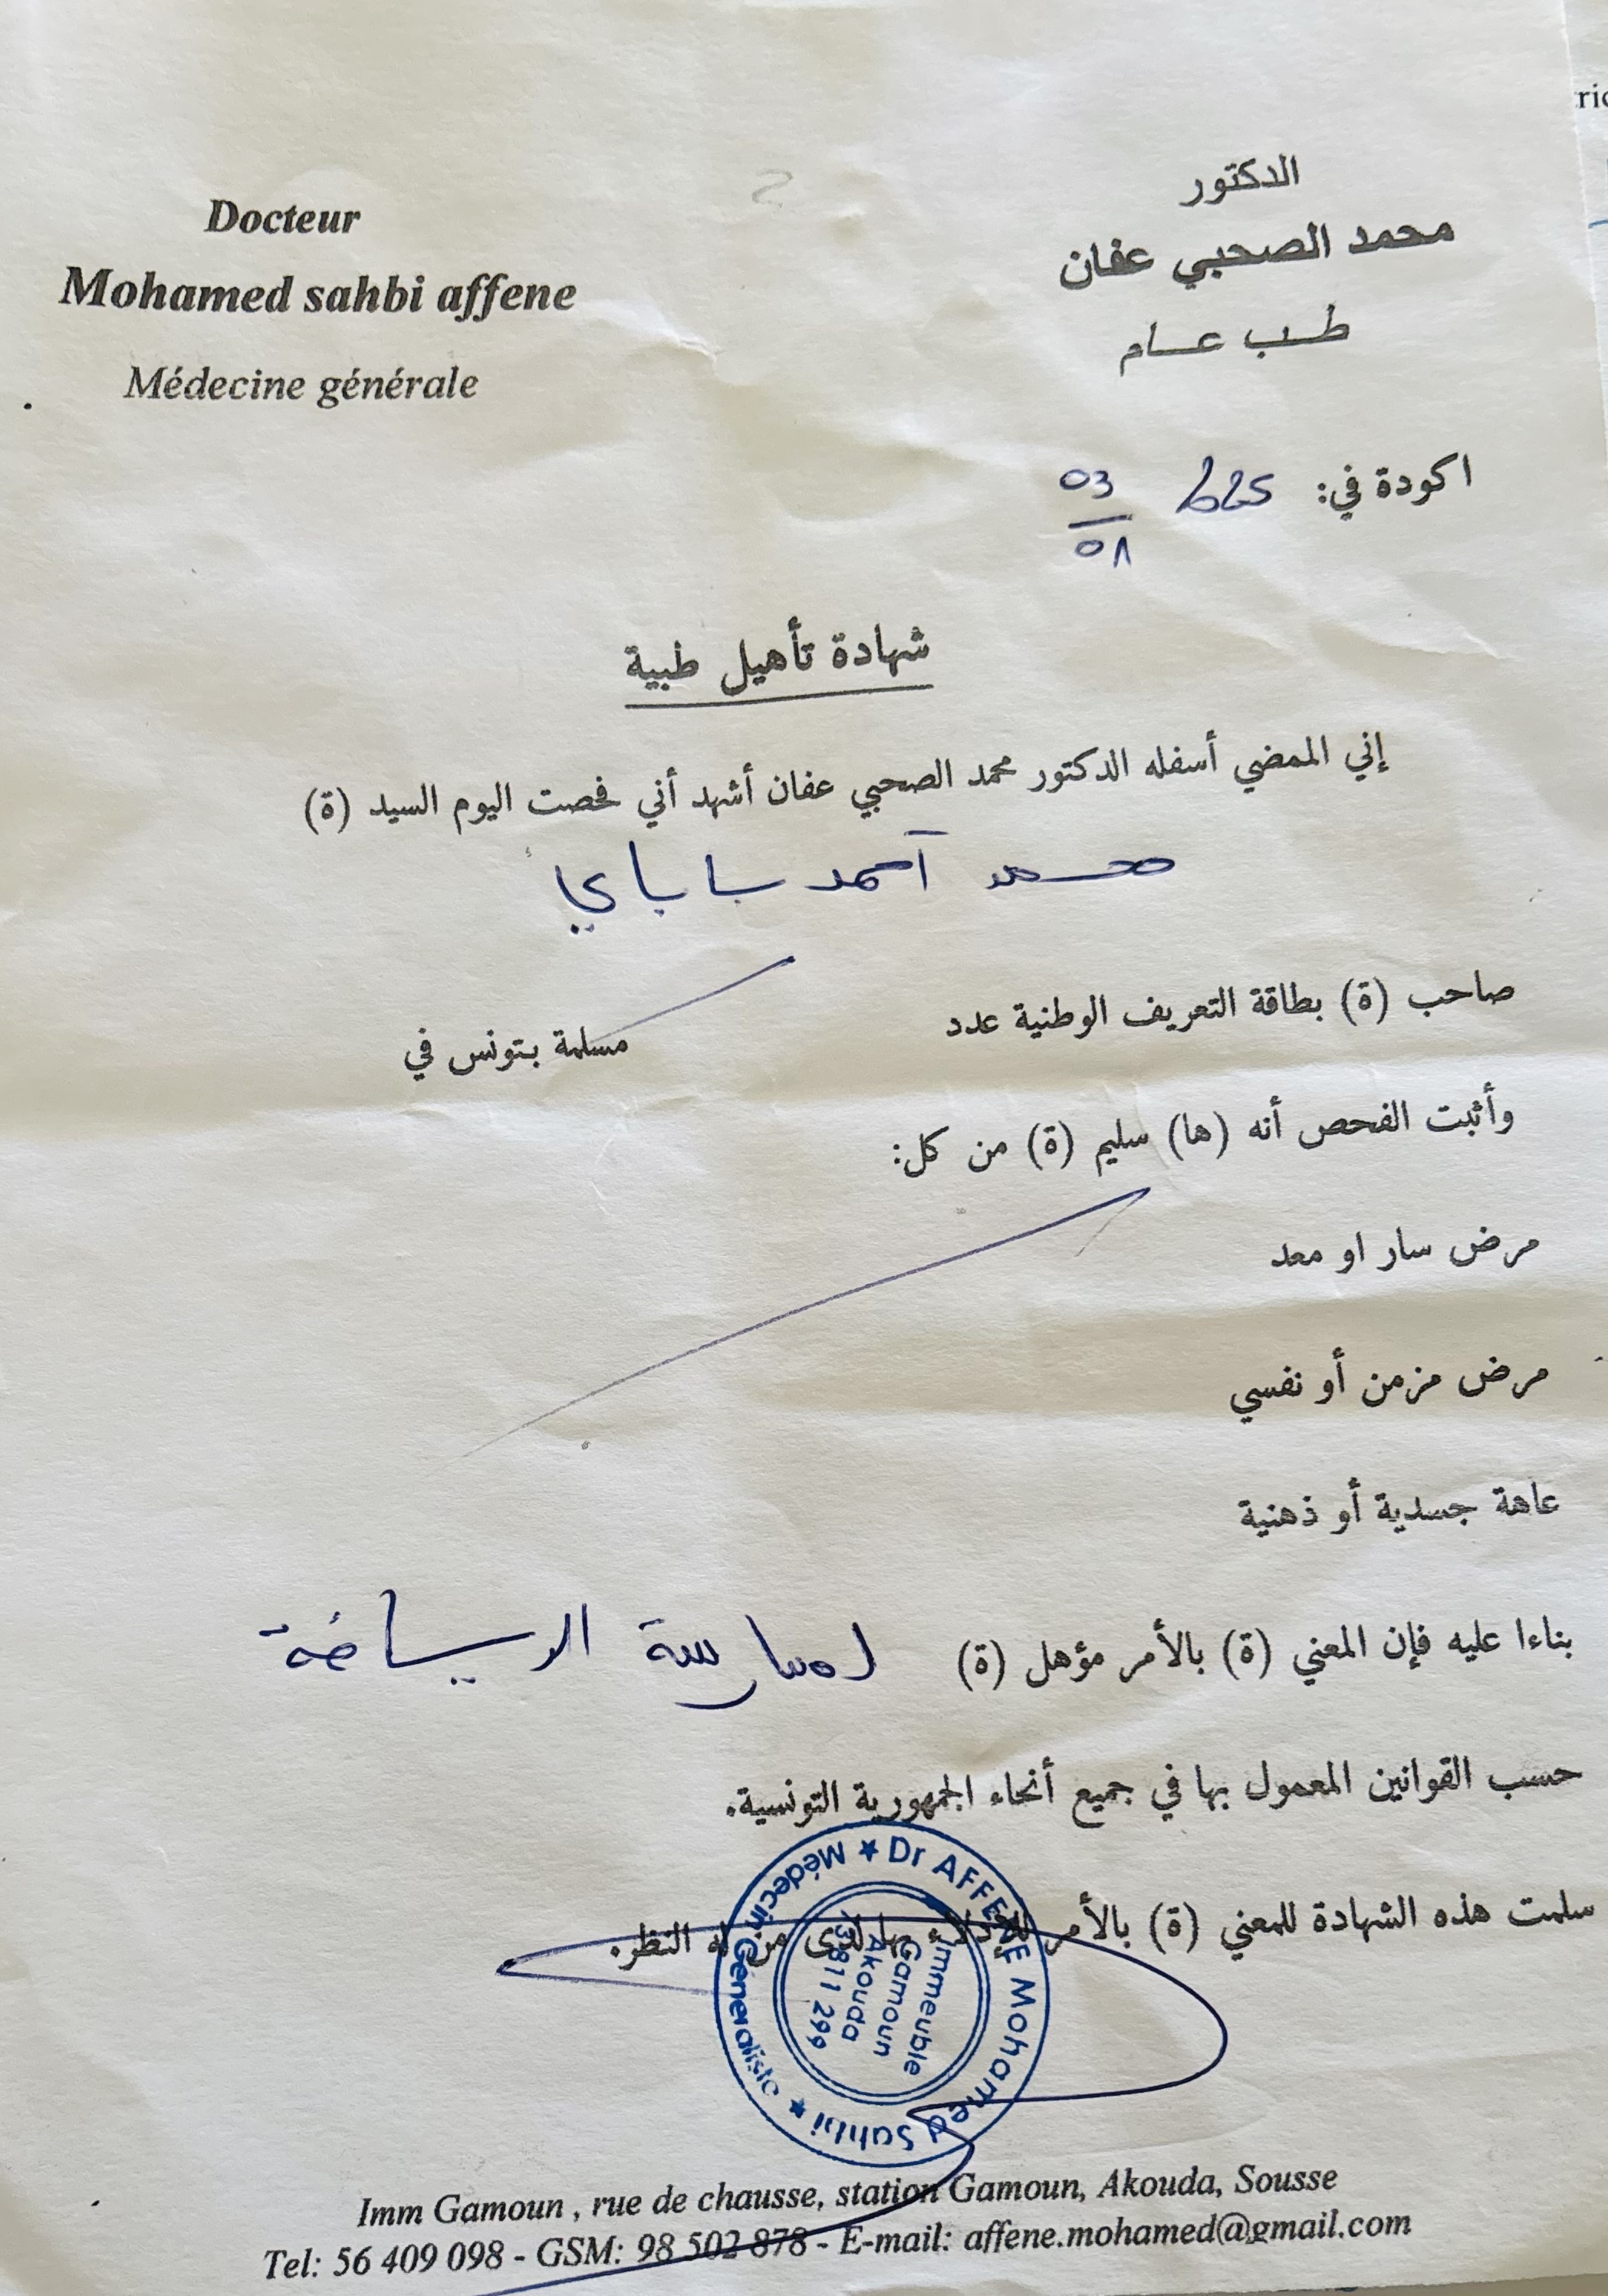 Docteur
Mohamed sahbi affene
Médecine générale
الدكتور
محمد الصحبي عفان
طب عام
اكودة في: 2025 03
01
شهادة تأهيل طبية
إني الممضي أسفله الدكتور محمد الصحبي عفان أشهد أني فحصت اليوم السيد (ة)
محمد أحمد بابا
صاحب (ة) بطاقة التعريف الوطنية عدد مسلمة بتونس في
وأثبت الفحص أنه (ها) سليم (ة) من كل:
مرض سار او معد
مرض مزمن أو نفسي
عاهة جسدية أو ذهنية
بناءا عليه فإن المعني (ة) بالأمر مؤهل (ة) لممارسة الرياضة
حسب القوانين المعمول بها في جميع أنحاء الجمهورية التونسية.
سلمت هذه الشهادة للمعني (ة) بالأمر للإدلاء بها لدى من له النظر.
Dr AFFENE Mohamed Sahbi ★ Médecin Généraliste ★
Immeuble
Gamoun
Akouda
Imm Gamoun , rue de chausse, station Gamoun, Akouda, Sousse
Tel: 56 409 098 - GSM: 98 502 878 - E-mail: affene.mohamed@gmail.com